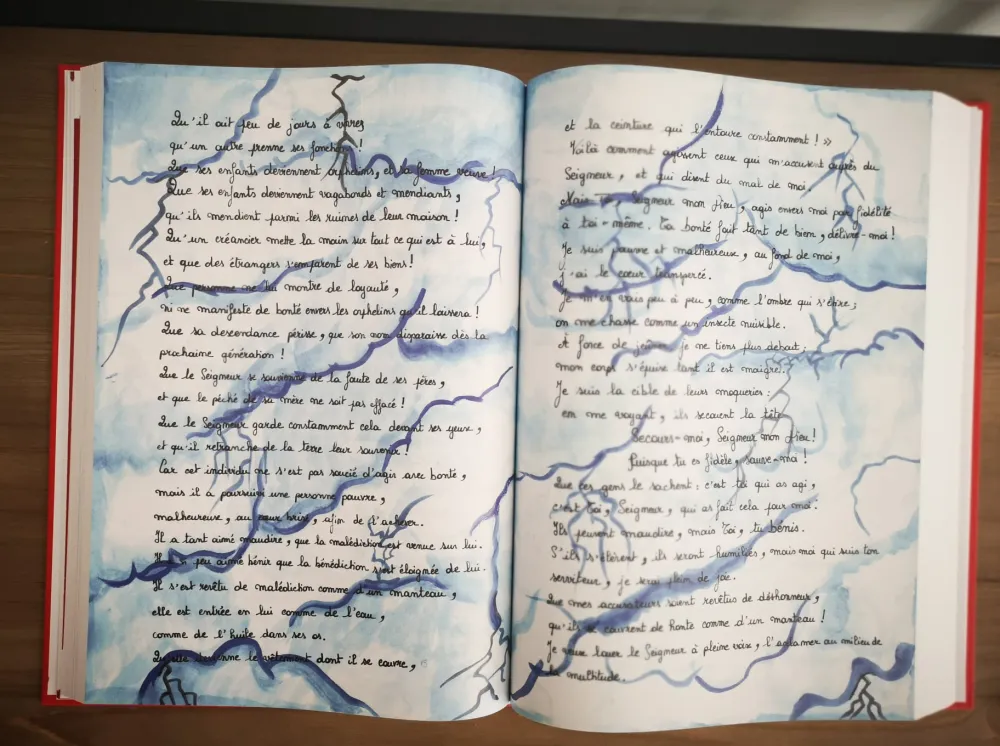 Qu'il ait peu de jours à vivre,
qu'un autre prenne ses fonctions !
Que ses enfants deviennent orphelins, et sa femme veuve !
Que ses enfants deviennent vagabonds et mendiants,
qu'ils mendient parmi les ruines de leur maison !
Qu'un créancier mette la main sur tout ce qui est à lui,
et que des étrangers s'emparent de ses biens !
Que personne ne lui montre de loyauté,
ni ne manifeste de bonté envers les orphelins qu'il laissera !
Que sa descendance périsse, que son nom disparaisse dès la
prochaine génération !
Que le Seigneur se souvienne de la faute de ses pères,
et que le péché de sa mère ne soit pas effacé !
Que le Seigneur garde constamment cela devant ses yeux,
et qu'il retranche de la terre leur souvenir !
Car cet individu ne s'est pas soucié d'agir avec bonté,
mais il a poursuivi une personne pauvre,
malheureuse, au cœur brisé, afin de l'achever.
Il a tant aimé maudire, que la malédiction est venue sur lui.
Il a si peu aimé bénir que la bénédiction s'est éloignée de lui.
Il s'est revêtu de malédiction comme d'un manteau,
elle est entrée en lui comme de l'eau,
comme de l'huile dans ses os.
Qu'elle devienne le vêtement dont il se couvre,
et la ceinture qui l'entoure constamment ! »
Voilà comment agissent ceux qui m'accusent auprès du
Seigneur, et qui disent du mal de moi.
Mais toi, Seigneur mon Dieu, agis envers moi par fidélité
à toi-même. Ta bonté fait tant de bien, délivre-moi !
Je suis pauvre et malheureuse, au fond de moi,
j'ai le cœur transpercé.
Je m'en vais peu à peu, comme l'ombre qui s'étire ;
on me chasse comme un insecte nuisible.
A force de jeûner je ne tiens plus debout ;
mon corps s'épuise tant il est maigre.
Je suis la cible de leurs moqueries :
en me voyant, ils secouent la tête.
Secours-moi, Seigneur mon Dieu !
Puisque tu es fidèle, sauve-moi !
Que ces gens le sachent : c'est toi qui as agi,
c'est toi, Seigneur, qui as fait cela pour moi.
Ils peuvent maudire, mais toi, tu bénis.
S'ils s'élèvent, ils seront humiliés, mais moi qui suis ton
serviteur, je serai plein de joie.
Que mes accusateurs soient revêtus de déshonneur,
qu'ils se couvrent de honte comme d'un manteau !
Je veux louer le Seigneur à pleine voix, l'acclamer au milieu de
la multitude.